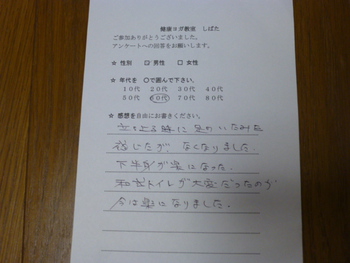 健康ヨガ教室 しばた
ご参加ありがとうございました。
アンケートへの回答をお願いします。
☆ 性別 ☑ 男性 □ 女性
☆ 年代を ○で囲んで下さい。
10代 20代 30代 40代
50代 60代 70代 80代
☆ 感想を自由にお書きください。
立ち上る時に足のいたみを
感じたが、なくなりました。
下半身が楽になった。
和式トイレが大変だったのが
今は楽になりました。